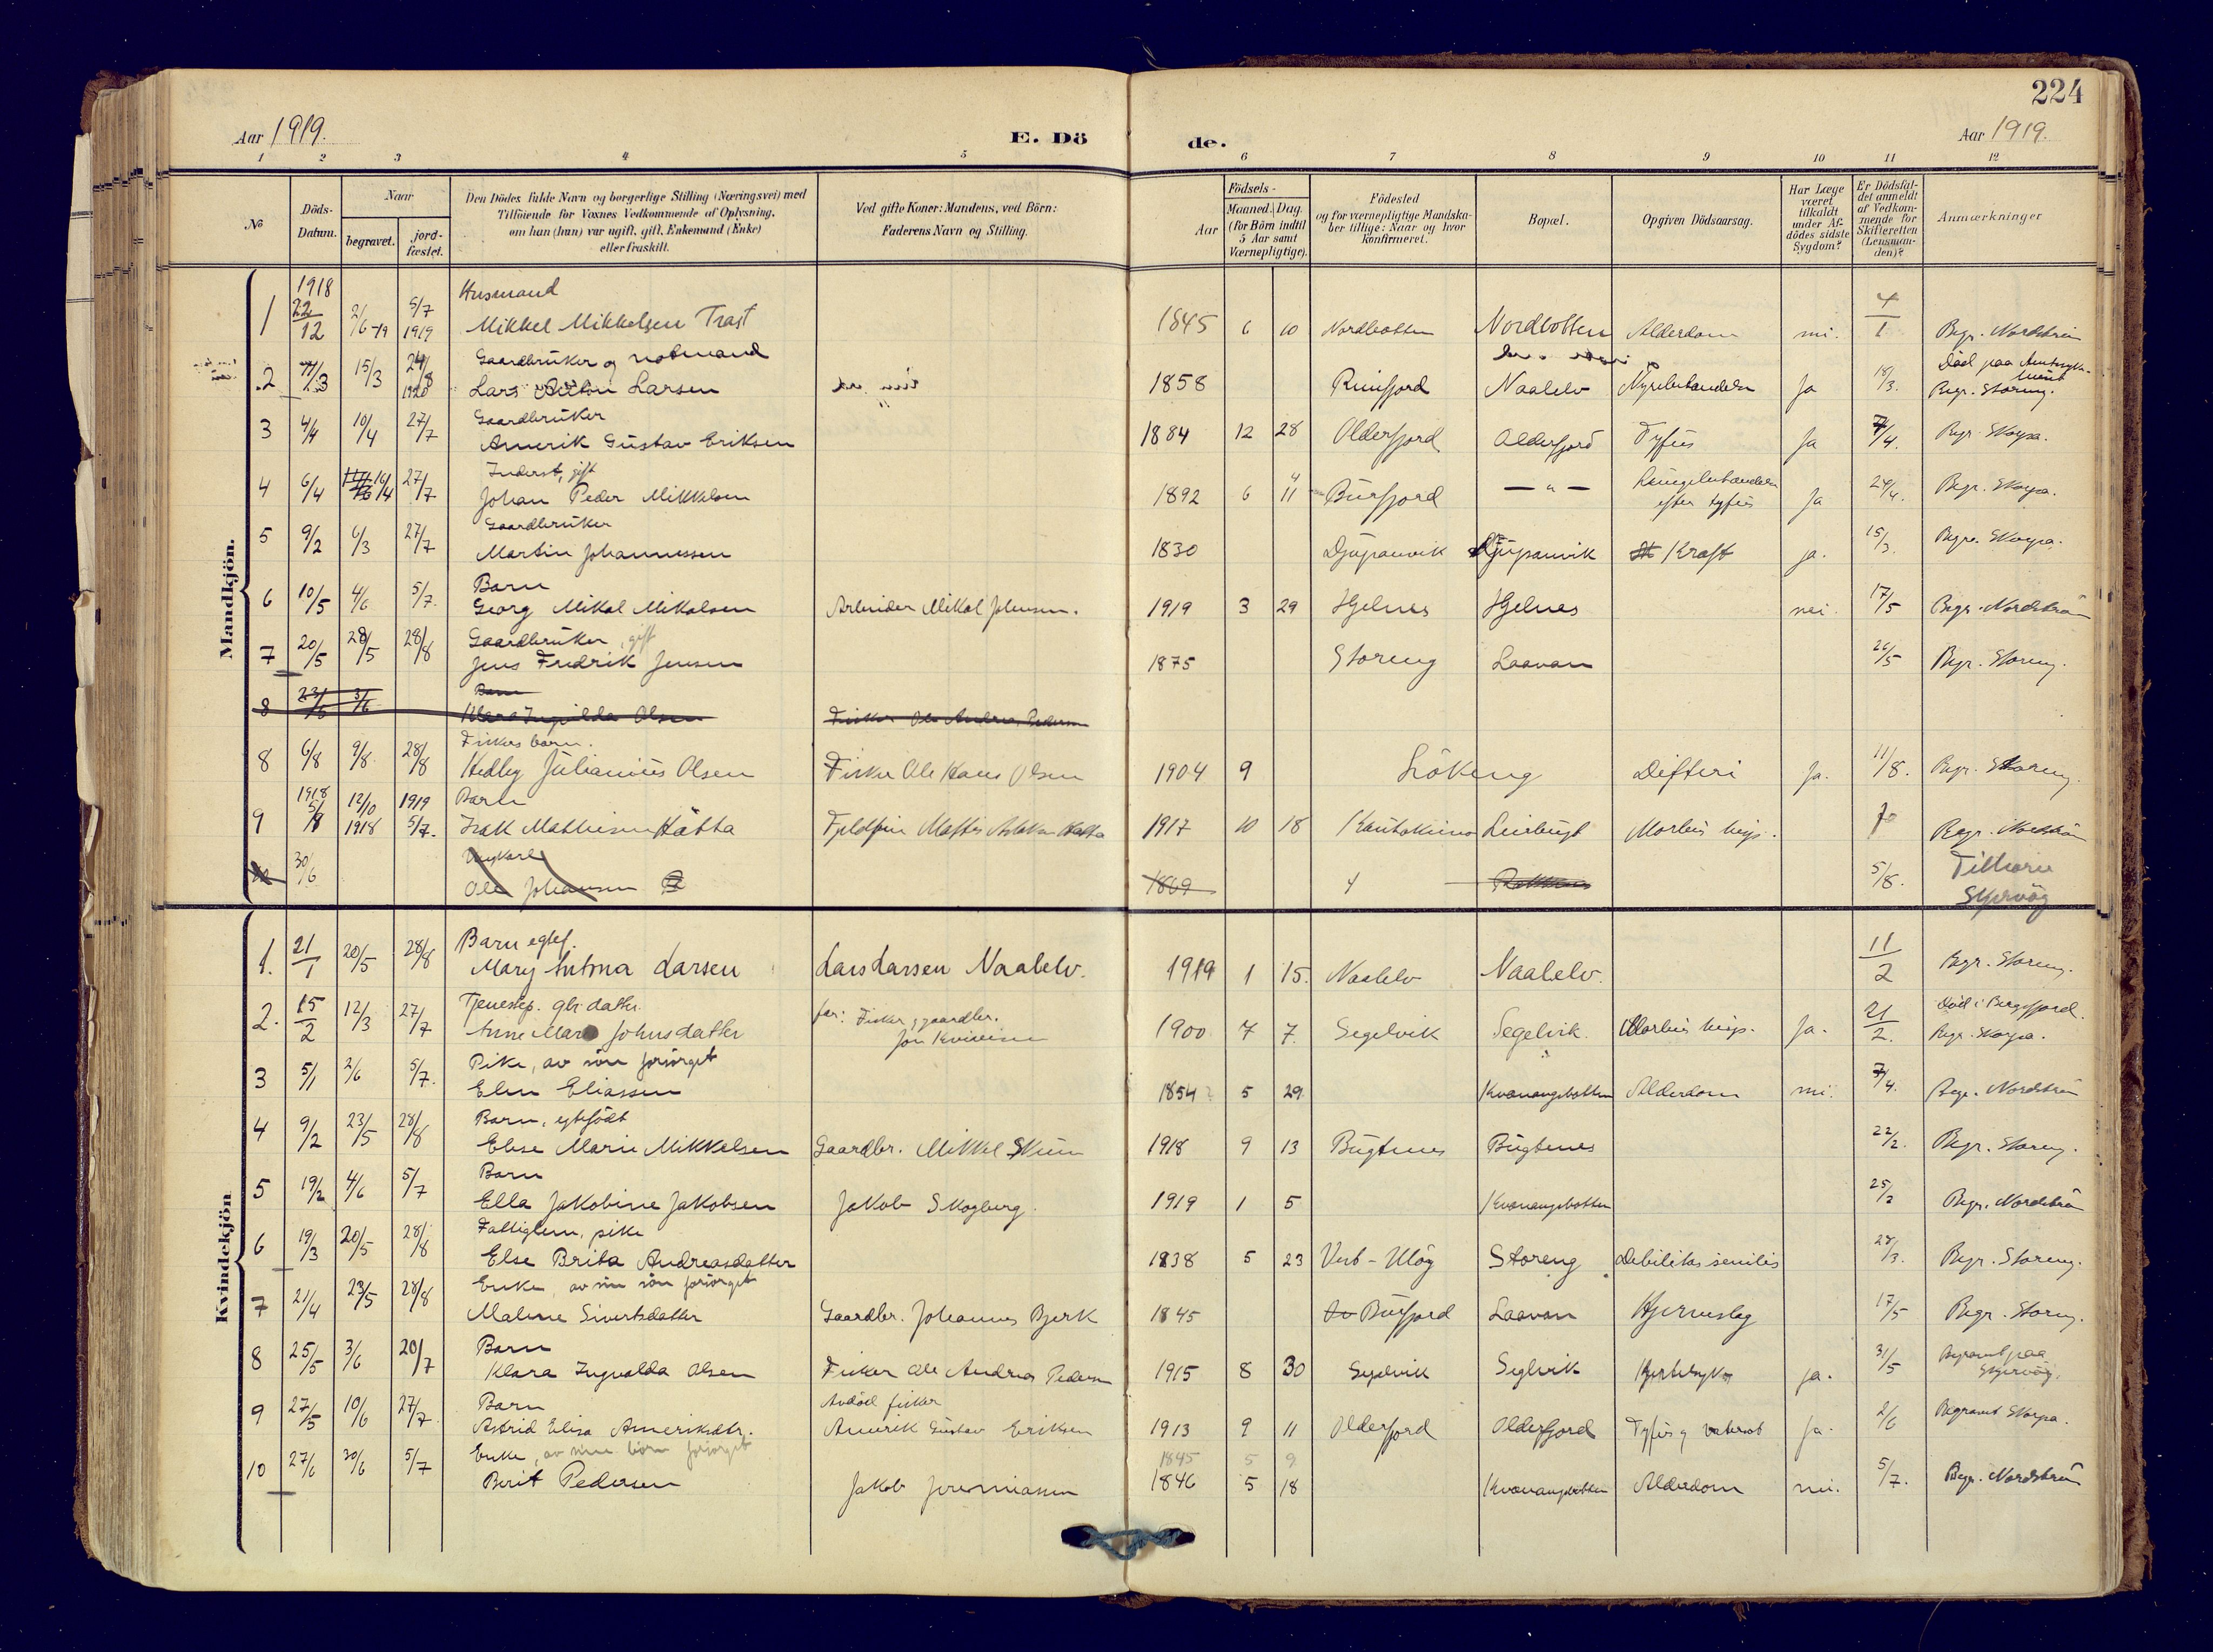 224
Aar 1919.
E. Dö
de.
Aar 1919.
1 2 3 4 5 6 7 8 9 10 11 12
No
Döds-
Datum.
Naar
begravet.
jord-
fæstet.
Den Dödes fulde Navn og borgerlige Stilling (Næringsvei) med
Tilföiende for Voxnes Vedkommende af Oplysning,
om han (hun) var ugift, gift, Enkemand (Enke)
eller fraskilt.
Ved gifte Koner: Mandens, ved Börn:
Faderens Navn og Stilling.
Aar
Födsels-
Maaned. Dag
(for Börn indtil
5 Aar samt
Værnepligtige).
Födested
og for værnepligtige Mandska-
ber tillige: Naar og hvor
konfirmeret.
Bopæl.
Opgiven Dödsaarsag.
Har Læge
været
tilkaldt
under Af-
dödes sidste
Sygdom?
Er Dödsfal-
det anmeldt
af Vedkom-
mende for
Skifteretten
(Lensman-
den)?
Anmærkninger
Mandkjön.
1918 Husmand
1 22/12 2/6-19 5/7 1919 Mikkel Mikkelsen Trast 1845 6 10 Nordbotten Nordbotten Alderdom nei. 4/1 Begr. Nordström
Gaardbruker og notmand Död paa Amtssyk-
2 15/3 24/8 1920 Lars Larsen 1858 Naalelv Ja 18/3. Begr. Storeng.
Gaardbruker
3 4/4 10/4 27/7 Amerik Gustav Eriksen 1884 12 28 Olderfjord Olderfjord Tyfus Ja 7/4. Begr. Skorpa.
Inderst, gift Lungebetændelse
4 6/4 16/4 27/7 Johan Peder Mikkelsen 1892 6 11 Burfjord — " — efter tyfus Ja 24/4. Begr. Skorpa.
Gaardbruker
5 9/2 6/3 27/7 Martin Johannessen 1830 Djupanvik Djupanvik Kræft ja. 15/3. Begr. Skorpa.
Barn
6 10/5 4/6 5/7. Georg Mikal Mikalsen Arbeider Mikal Johnsen. 1919 3 29 Hjelnes Hjelnes nei. 17/5 Begr. Nordström
Gaardbruker, gift
7 20/5 28/5 28/8 Jens Fredrik Jensen 1875 Storeng Laavan 26/5 Begr. Storeng.
Barn
8 23/5 3/6 Klara Ingvalda Olsen Fisker Ole Andreas Pedersen
Fiskers barn.
8 6/8 9/8. 28/8 Hedley Julianus Olsen Fisker Ole Hans Olsen 1904 9 Lökeng Difteri Ja. 11/8. Begr. Storeng.
1918 12/10 1919 Barn
9 5/8 1918 5/7. Isak Mathisen Hätta Fjeldfin Mattis Aslaksen Hätta 1917 10 18 Kautokeino Leirbugt Morbus Ja Begr. Nordström
Ungkarl Tilhörer
30/6 Ole Johansen 1869 5/8. Skjervöy
Kvindekjön
Barn egtef.
1. 21/1 20/5 28/8 Mary Antona Larsen Lars Larsen Naalelv. 1919 1 15. Naalelv Naalelv. 11/2 Begr. Storeng.
Tjenestep. gbr. datter far: Fisker, gaardbr. Död i Bergsfjord.
2. 15/2 12/3 27/7 Anne Johnsdatter 1900. 7 7. Segelvik Segelvik. Morbus Ja. 21/2. Begr. Skorpa.
Pike, av sön forsörget
3 5/1 2/6 5/7. Elen Eliassen 1854? 5 29. Kvænangsbotten Alderdom nei. 7/4. Begr. Nordström
Barn, egtefödt
4 9/2 23/5 28/8 Elise Marie Mikkelsen Gaardbr. Mikkel Skum 1918 9 13 Bugtenes Bugtenes 22/2. Begr. Storeng.
Barn
5 19/2 4/6 5/7 Ella Jakobine Jakobsen Jakob Skogberg. 1919 1 5 Kvænangsbotten 25/2 Begr. Nordström
Fattiglem, pike
6 19/3 20/5 28/8 Else Brita Andreasdatter 1838 5 23 Vest-Ulöy Storeng Debilitas senilis 28/3. Begr. Storeng.
Enke, av sin sön forsörget
7 21/4 23/5 28/8 Malene Sivertsdatter Gaardbr. Johannes Bjerk 1845 Burfjord Laavan Hjerneslag 17/5 Begr. Storeng.
Barn Begravet paa
8 25/5 3/6 20/7 Klara Ingvalda Olsen Fisker Ole Andreas Pedersen 1915 8 30 Segelvik Seglvik ja. 31/5 Skjervöy.
Barn Avdöd fisker
9 27/5 10/6 27/7 Astrid Elisa Ameriksdtr. Amerik Gustav Eriksen 1913 9 11 Olderfjord Olderfjord Tyfus Ja. 2/6 Begravet Skorpa.
Enke, av sine börn forsörget 1845 5 9
10 27/6 30/6 5/7 Berit Pedersen Jakob Jeremiassen 1846 5 18 Kvænangsbotten Alderdom nei. 5/7. Begr. Nordström